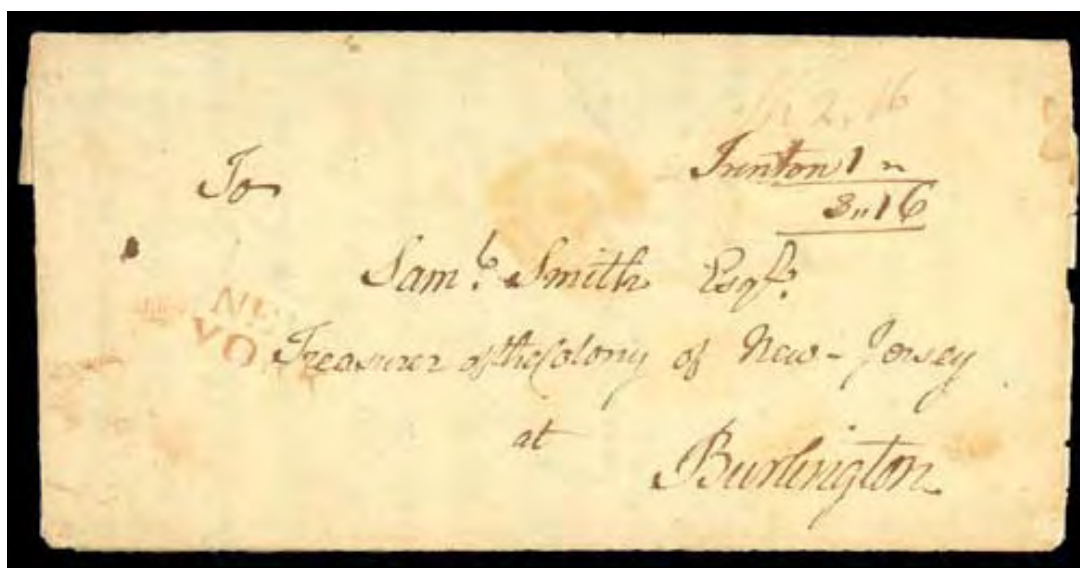 2, 16
To
Trenton 1 "
3,, 16
Sam.l Smith Esqr.
NEW
YO
Treasurer of the Colony of New-Jersey
at
Burlington